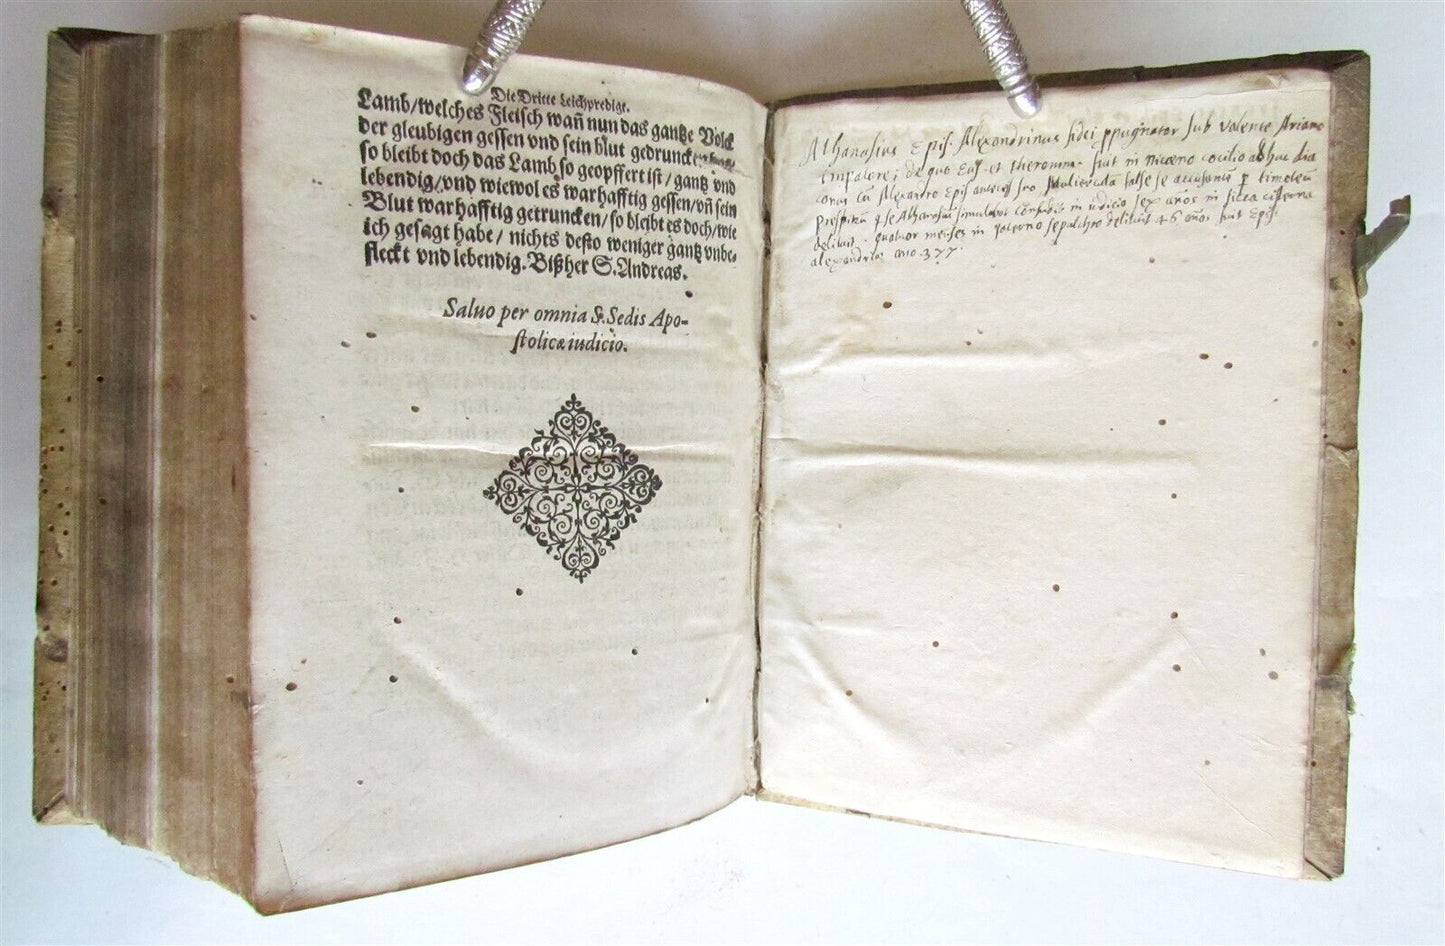 Die Dritte Leichpredigt.
Lamb/welches Fleisch wañ nun das gantze Volck
der gleubigen gessen vnd sein blut getruncken
so bleibt doch das Lamb so geopffert ist / gantz vnd
lebendig/vnd wiewol es warhafftig gessen/vñ sein
Blut warhafftig getruncken/so bleibt es doch/wie
ich gesagt habe / nichts desto weniger gantz vnbe-
fleckt vnd lebendig. Bißher S. Andreas.
Saluo per omnia S. Sedis Apo-
stolicæ iudicio.
Athanasius Epis. Alexandrinus fidei ꝓpugnator sub valente Ariano
impatore; de quo Eus. et theronim. fuit in niceno cōcilio adhuc dia
conus cū Alexandro Epis. Muliercula false se accusante timoteū
presbiterū in iudicio sex años in sicca cisterna
delituit. quatuor menses in paterno sepulchro delituit 46 años fuit Epis.
alexandriæ Ano. 377.